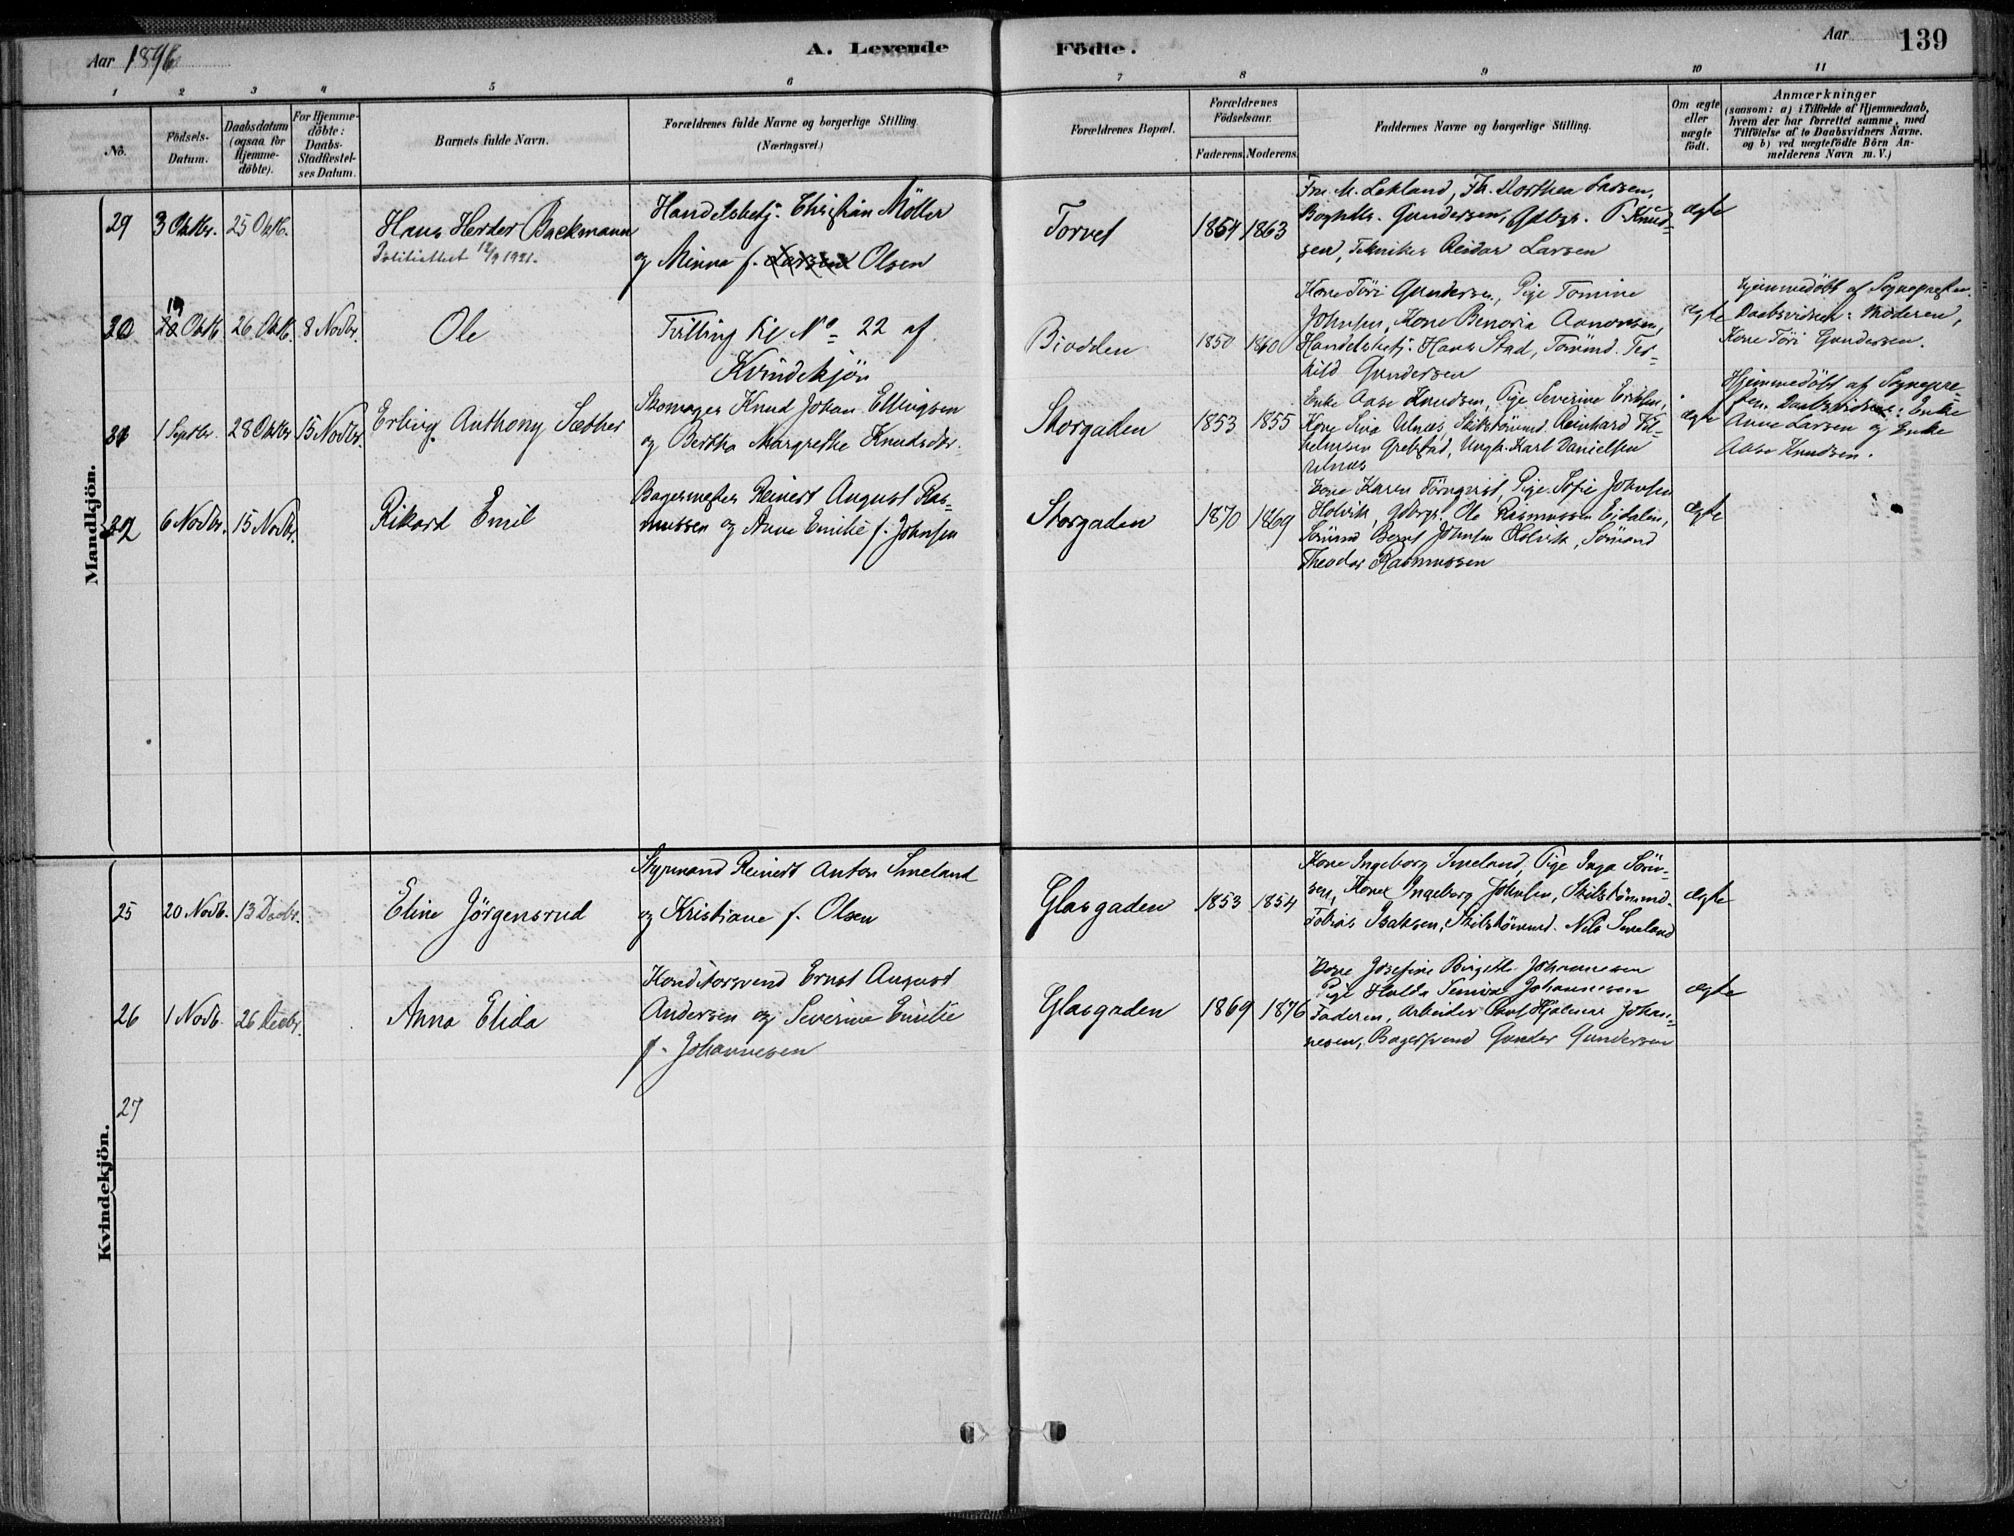 Aar 1896
A. Levende
Födte.
Aar
139
1 2 3 4 5 6 7 8 9 10 11
No.
Födsels-
Datum.
Daabsdatum
(ogsaa for
Hjemme-
døbte).
For Hjemme-
døbte:
Daabs-
Stadfæstel-
ses Datum.
Barnets fulde Navn.
Forældrenes fulde Navne og borgerlige Stilling.
(Næringsvei.)
Forældrenes Bopæl.
Forældrenes
Födselsaar.
Faderens. Moderens.
Faddernes Navne og borgerlige Stilling.
Om ægte
eller
uægte
født.
Anmærkninger
(saasom: a) i Tilfælde af Hjemmedaab,
hvem der har forrettet samme, med
Tilföielse af to Daabsvidners Navne.
og b) ved uægtefödte Börn An-
melderens Navn m. V.)
Mandkjön.
29
3 Oktbr.
25 Oktb.
Hans Herder Backmann
Politiattest 12/9 1921.
Handelsbetj. Christian Möller
og Minna f. Larsen Olsen
Torvet
1854
1863
Fru M. Lekland, Frk. Dorthea Larsen,
Boghdlr. Gundersen, Gdbgr. P. Knud-
sen, Tekniker Reidar Larsen
ægte
30
19
20 Oktb
26 Oktb.
8 Novbr.
Ole
Tvilling til No 22 af
Kvindekjön
Biodden
1850
1860
Kone Töri Gundersen, Pige Tomine
Johnsen, Kone Benovia Aanonsen,
Handelsbetj. Hans Stad, Tömmd. Ter-
kild Gundersen
ægte
Hjemmedöbt af Sognepresten.
Daabsvidner: Moderen,
Kone Töri Gundersen.
31
1 Septbr.
28 Oktbr
15 Novbr.
Erling Anthony Sæther
Skomager Knud Johan Ellingsen
og Bertha Margrethe Knudsdtr.
Storgaden
1853
1855
Enke Aase Knudsen, Pige Severine Eriksen,
Kone Siva Ulnes, Skibstömmd. Reinhard Vil-
helmsen Grebstad, Ungk. Karl Danielsen
Ulnes
ægte
Hjemmedöbt af Sognepre-
sten. Daabsvidner: Enke
Anne Larsen og Enke
Aase Knudsen.
32
6 Novbr.
15 Novbr.
Rikard Emil
Bagermester Reinert August Ras-
mussen og Anne Emilie f. Johnsen
Storgaden
1870
1869
Kone Karen Törnqvist, Pige Sofie Johnsen
Holvik, Gdbgr. Ole Rasmussen Eidalen,
Sömand Bernt Johnsen Holvik, Sömand
Theodor Rasmussen
ægte
Kvindekjön.
25
20 Novb.
13 Decbr.
Eline Jörgensrud
Styrmand Reinert Anton Smeland
og Kristiane f. Olsen
Glasgaden
1853
1854
Kone Ingeborg Smeland, Pige Inga Sören-
sen, Kone Ingeborg Johnsen, Skibstömmd.
Tobias Isaksen, Skibstömmd. Nils Smeland
ægte
26
1 Novb.
26 Decbr.
Anna Elida
Konditorsvend Ernst August
Andersen og Severine Emilie
f. Johannesen
Glasgaden
1869
1876
Kone Josefine Birgitte Johannesen
Pige Hulda Johannesen
Faderen, Arbeider Hjalmar Johan-
nesen, Bagersvend Gunder Gundersen
ægte
27